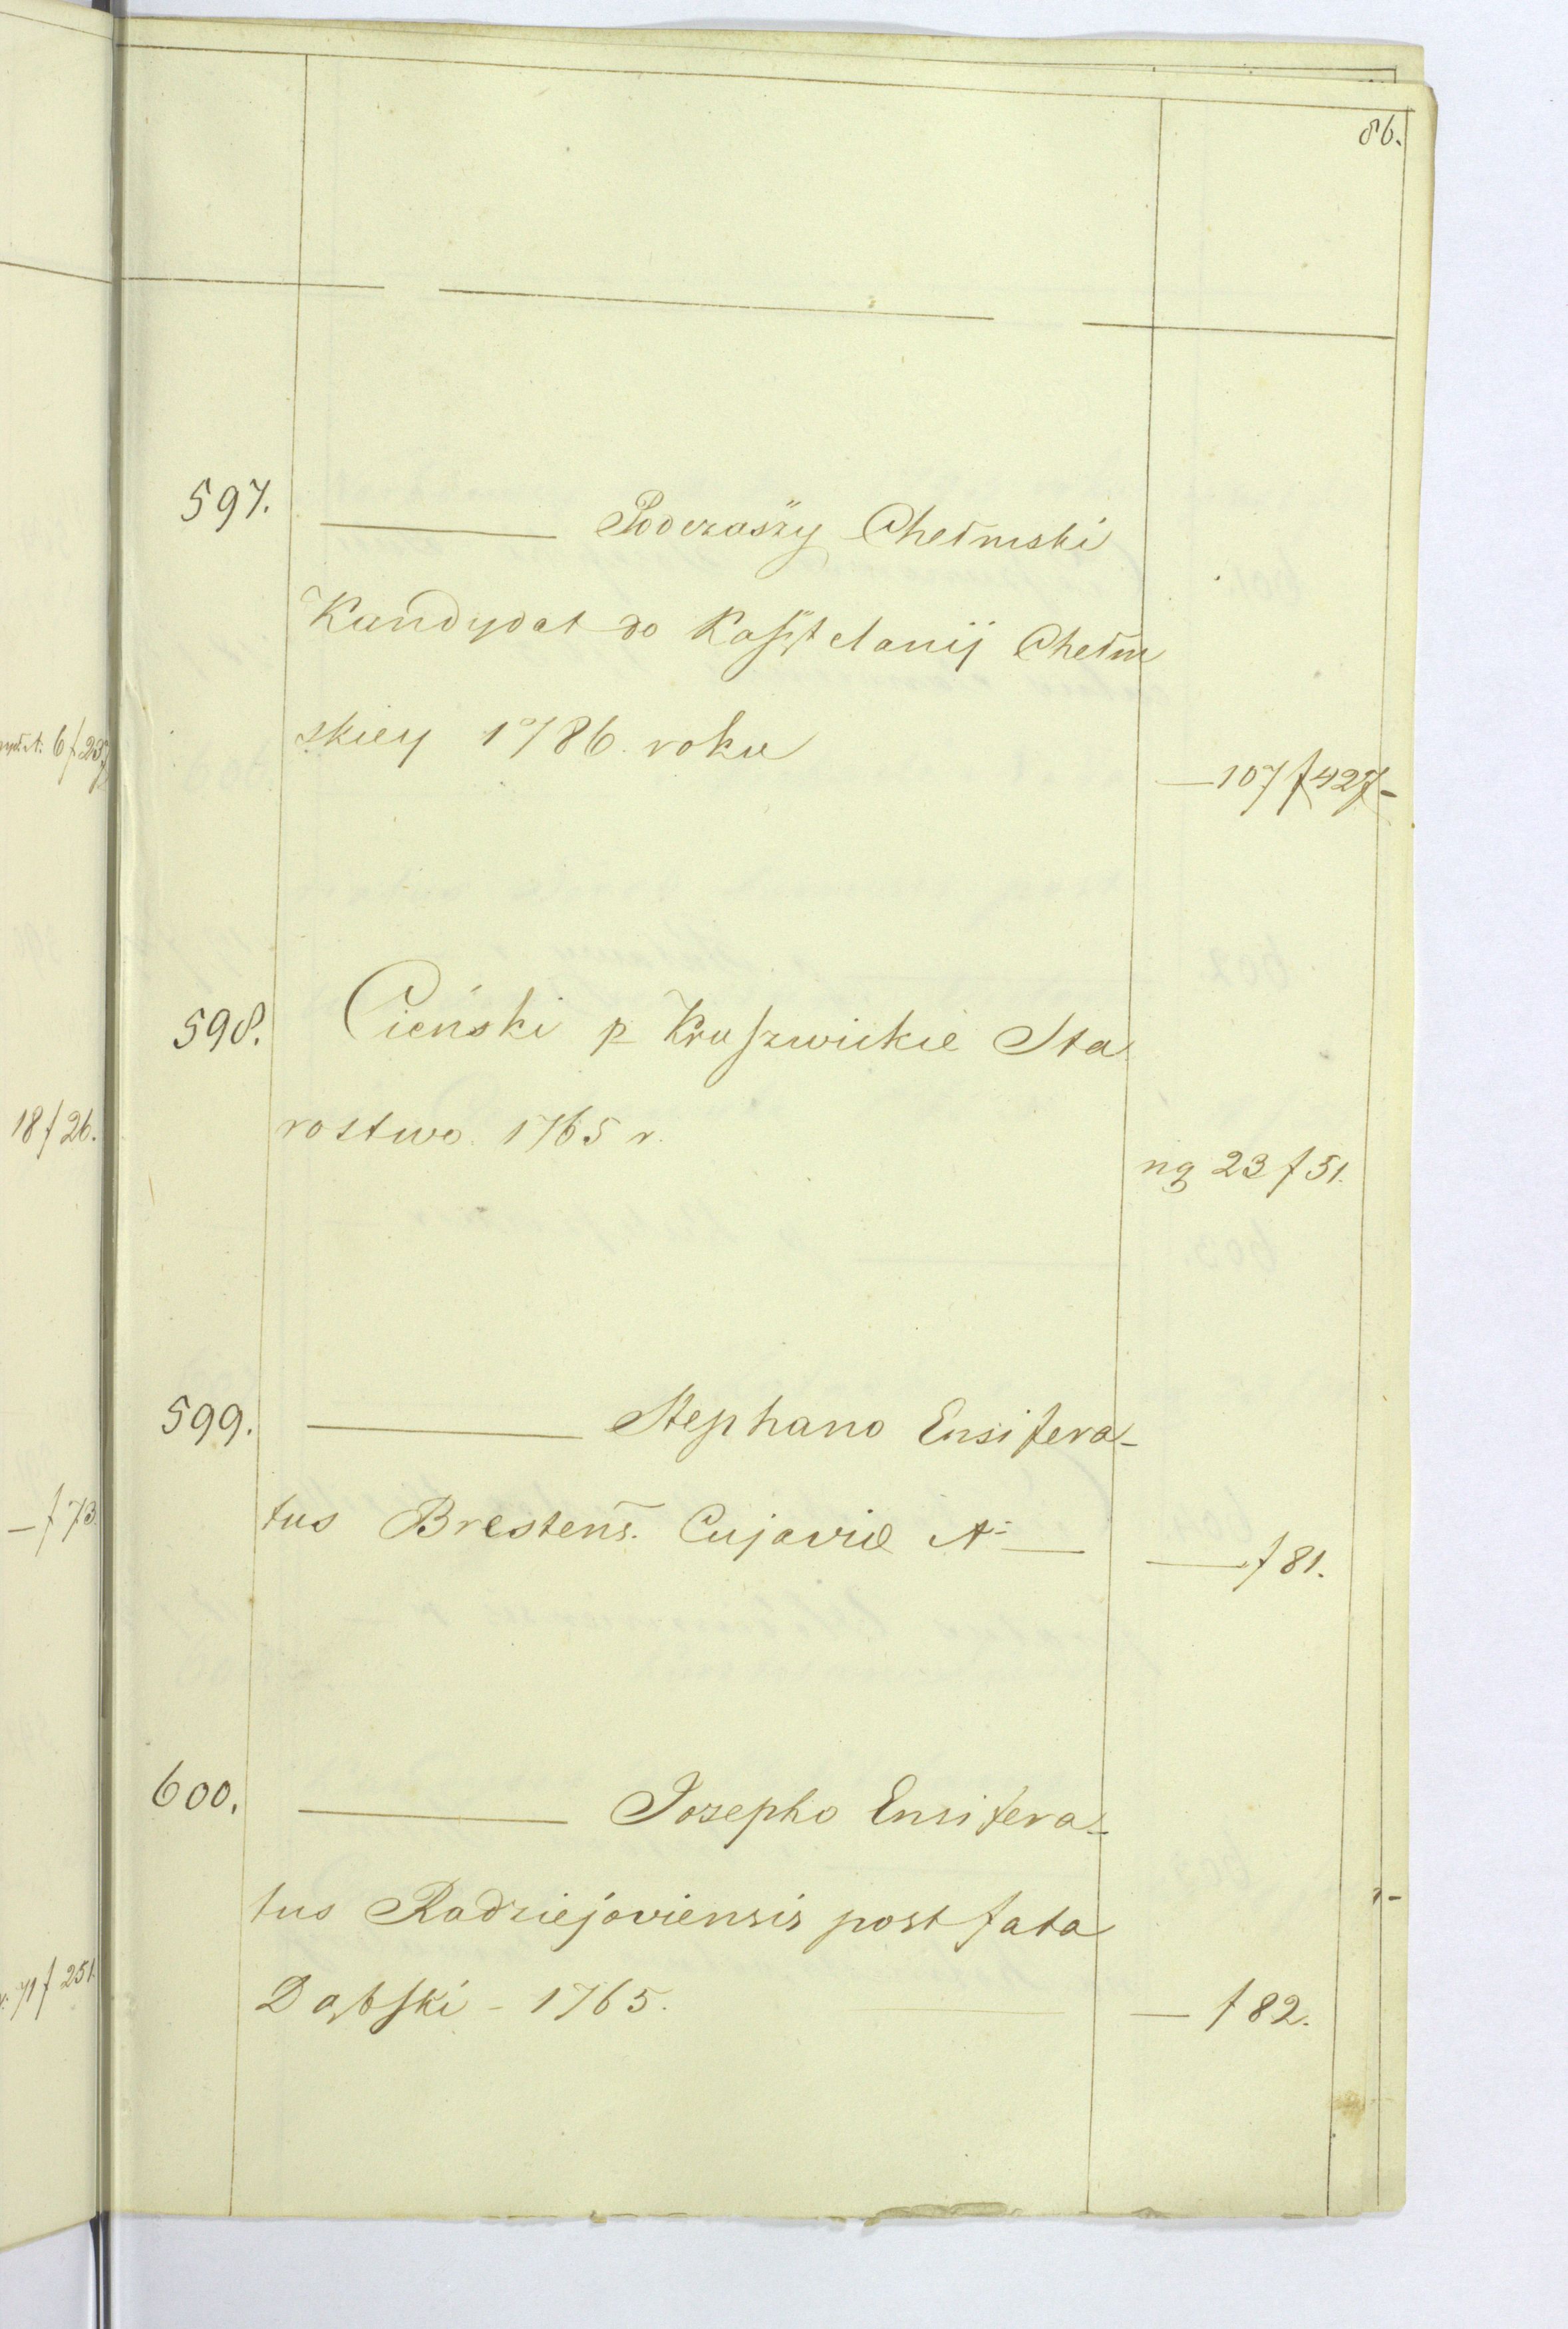 86.
597. ——— Podczaszy Chełmski
Kandydat do Kasztelanij Chełm
skiey 1786. roku
— 107 f 427 –
598. Cieński p Kruszwickie Sta
rostwo. 1765 r.
ng 23 f 51.
599. ——— Stephano Ensifera-
tus Brestens. Cujavie A: —
— f 81.
600. ——— Josepho Ensifera-
tus Radziejoviensis post fata
Dąbski - 1765.
— f 82.
6 f 237
18 f 26.
— f 73.
71 f 251.